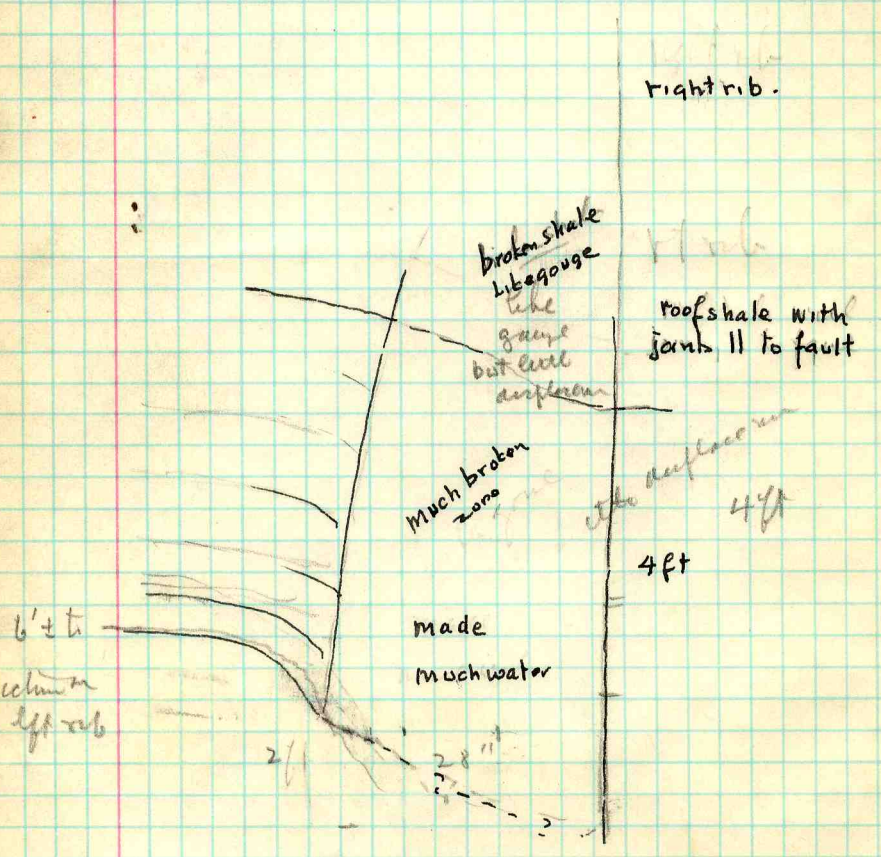 right rib.
broken shale
like gouge
like
gouge
but little
displacem
roof shale with
joints || to fault
much broken
zone
displacem
4 ft
4 ft
6' ±
made
much water
left rib
28"
?
?